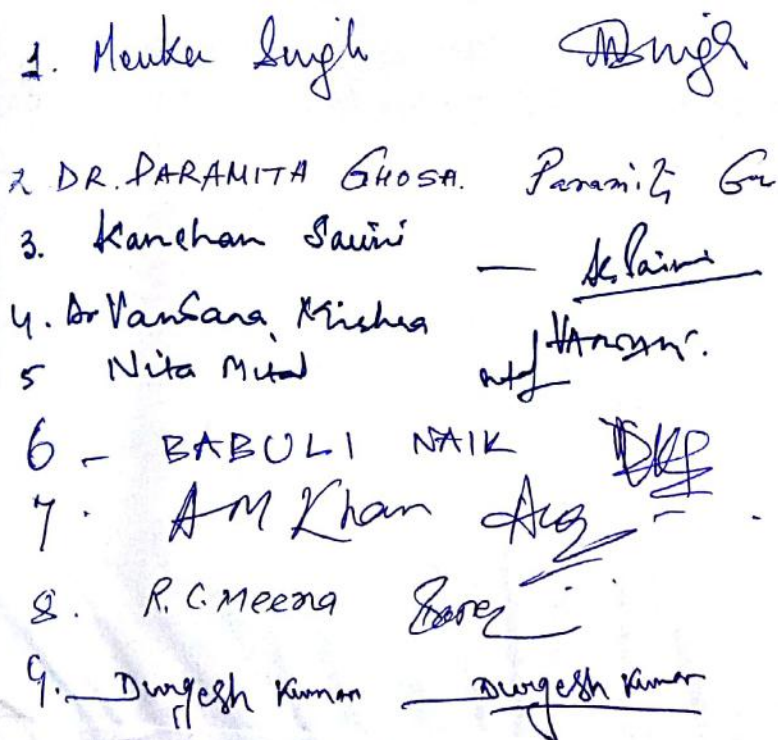 1. Menka Singh MSingh
2 DR. PARAMITA GHOSH. Paramita
3. Kanchan Saini — K. Saini
4. Dr Vandana Mishra
5 Nita Mital
6 - BABULI NAIK
7. A M Khan
8. R. C. Meena
9. Durgesh Kumar Durgesh Kumar